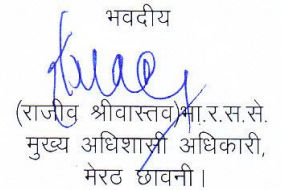 भवदीय
(राजीव श्रीवास्तव)भा.र.स.से.
मुख्य अधिशासी अधिकारी,
मेरठ छावनी।